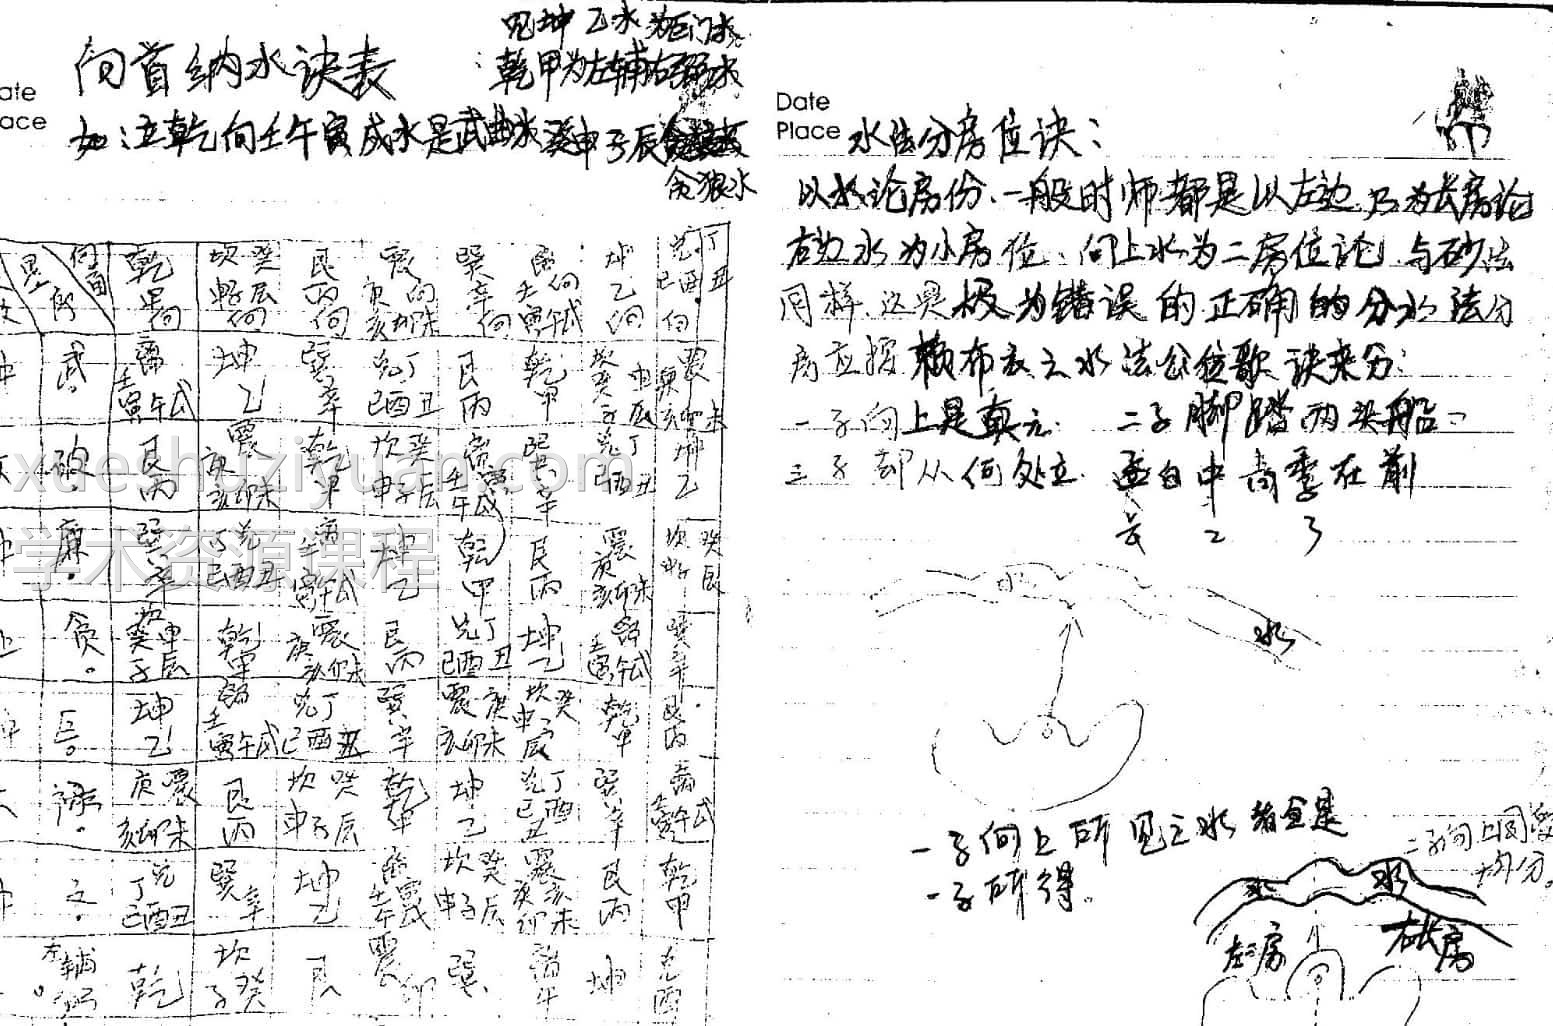 见坤乙水为巨门水
向首纳水诀表
乾甲为左辅右弼水
如：立乾向壬午寅戌水是武曲水癸申子辰
贪狼水
ate
ace
向首
星
乾甲向
坎癸申子辰向
艮丙向
震庚亥卯未向
巽辛向
离向壬寅午戌
坤乙向
兑丁巳酉丑向
武。
离壬寅午戌
坤乙
巽辛
兑丁巳酉丑
艮丙
乾甲
坎癸申子辰
震庚亥卯未
破。
艮丙
震庚亥卯未
乾甲
坎癸申子辰
离壬寅午戌
巽辛
兑丁巳酉丑
坤乙
廉。
巽辛
兑丁巳酉丑
离壬寅午戌
坤乙
乾甲
艮丙
震庚亥卯未
坎癸申子辰
贪。
坎癸申子辰
乾甲
震庚亥卯未
艮丙
兑丁巳酉丑
坤乙
离壬寅午戌
巽辛
巨。
坤乙
离壬寅午戌
兑丁巳酉丑
巽辛
震庚亥卯未
坎癸申子辰
乾甲
艮丙
禄。
震庚亥卯未
艮丙
坎癸申子辰
乾甲
坤乙
兑丁巳酉丑
巽辛
离壬寅午戌
文。
兑丁巳酉丑
巽辛
坤乙
离壬寅午戌
坎癸申子辰
震庚亥卯未
艮丙
乾甲
左辅
乾
坎癸子
艮
震卯
巽
离午
坤
兑酉
xueshuziyuan.com
学术资源课程
Date
Place
水法分房位诀：
以水论房份、一般时师都是以左边水为长房论
右边水为小房位、向上水为二房位论、与砂法
同样、这是极为错误的正确的分水法分
房应按赖布衣之水法公位歌诀来分：
一子向上是真元、二子脚踏两头船、
三子却从何处立、孟自中高季在前
长 2 3
水
水
一子向上所见之水都全是
一子所得。
二子向上同
均分。
水
水
左二房
右长房
向